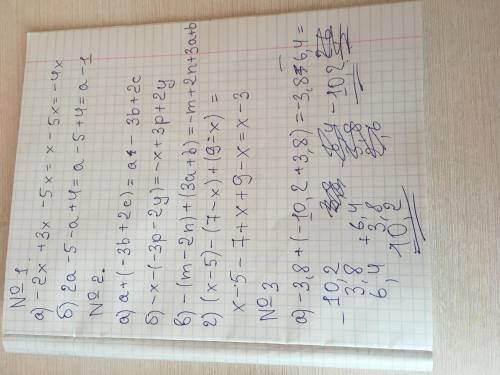 № 1.
а) -2x + 3x - 5x = x - 5x = -4x
б) 2a - 5 - a + 4 = a - 5 + 4 = a - 1
№ 2.
а) a + (-3b + 2c) = a - 3b + 2c
б) -x - (-3p - 2y) = -x + 3p + 2y
в) -(m - 2n) + (3a + b) = -m + 2n + 3a + b
г) (x - 5) - (7 - x) + (9 - x) =
x - 5 - 7 + x + 9 - x = x - 3
№ 3
а) -3,8 + (-10,2 + 3,8) = -3,8 - 6,4 =
-10,2
3,8
6,4
+ 6,4
3,8
10,2
- 10,2